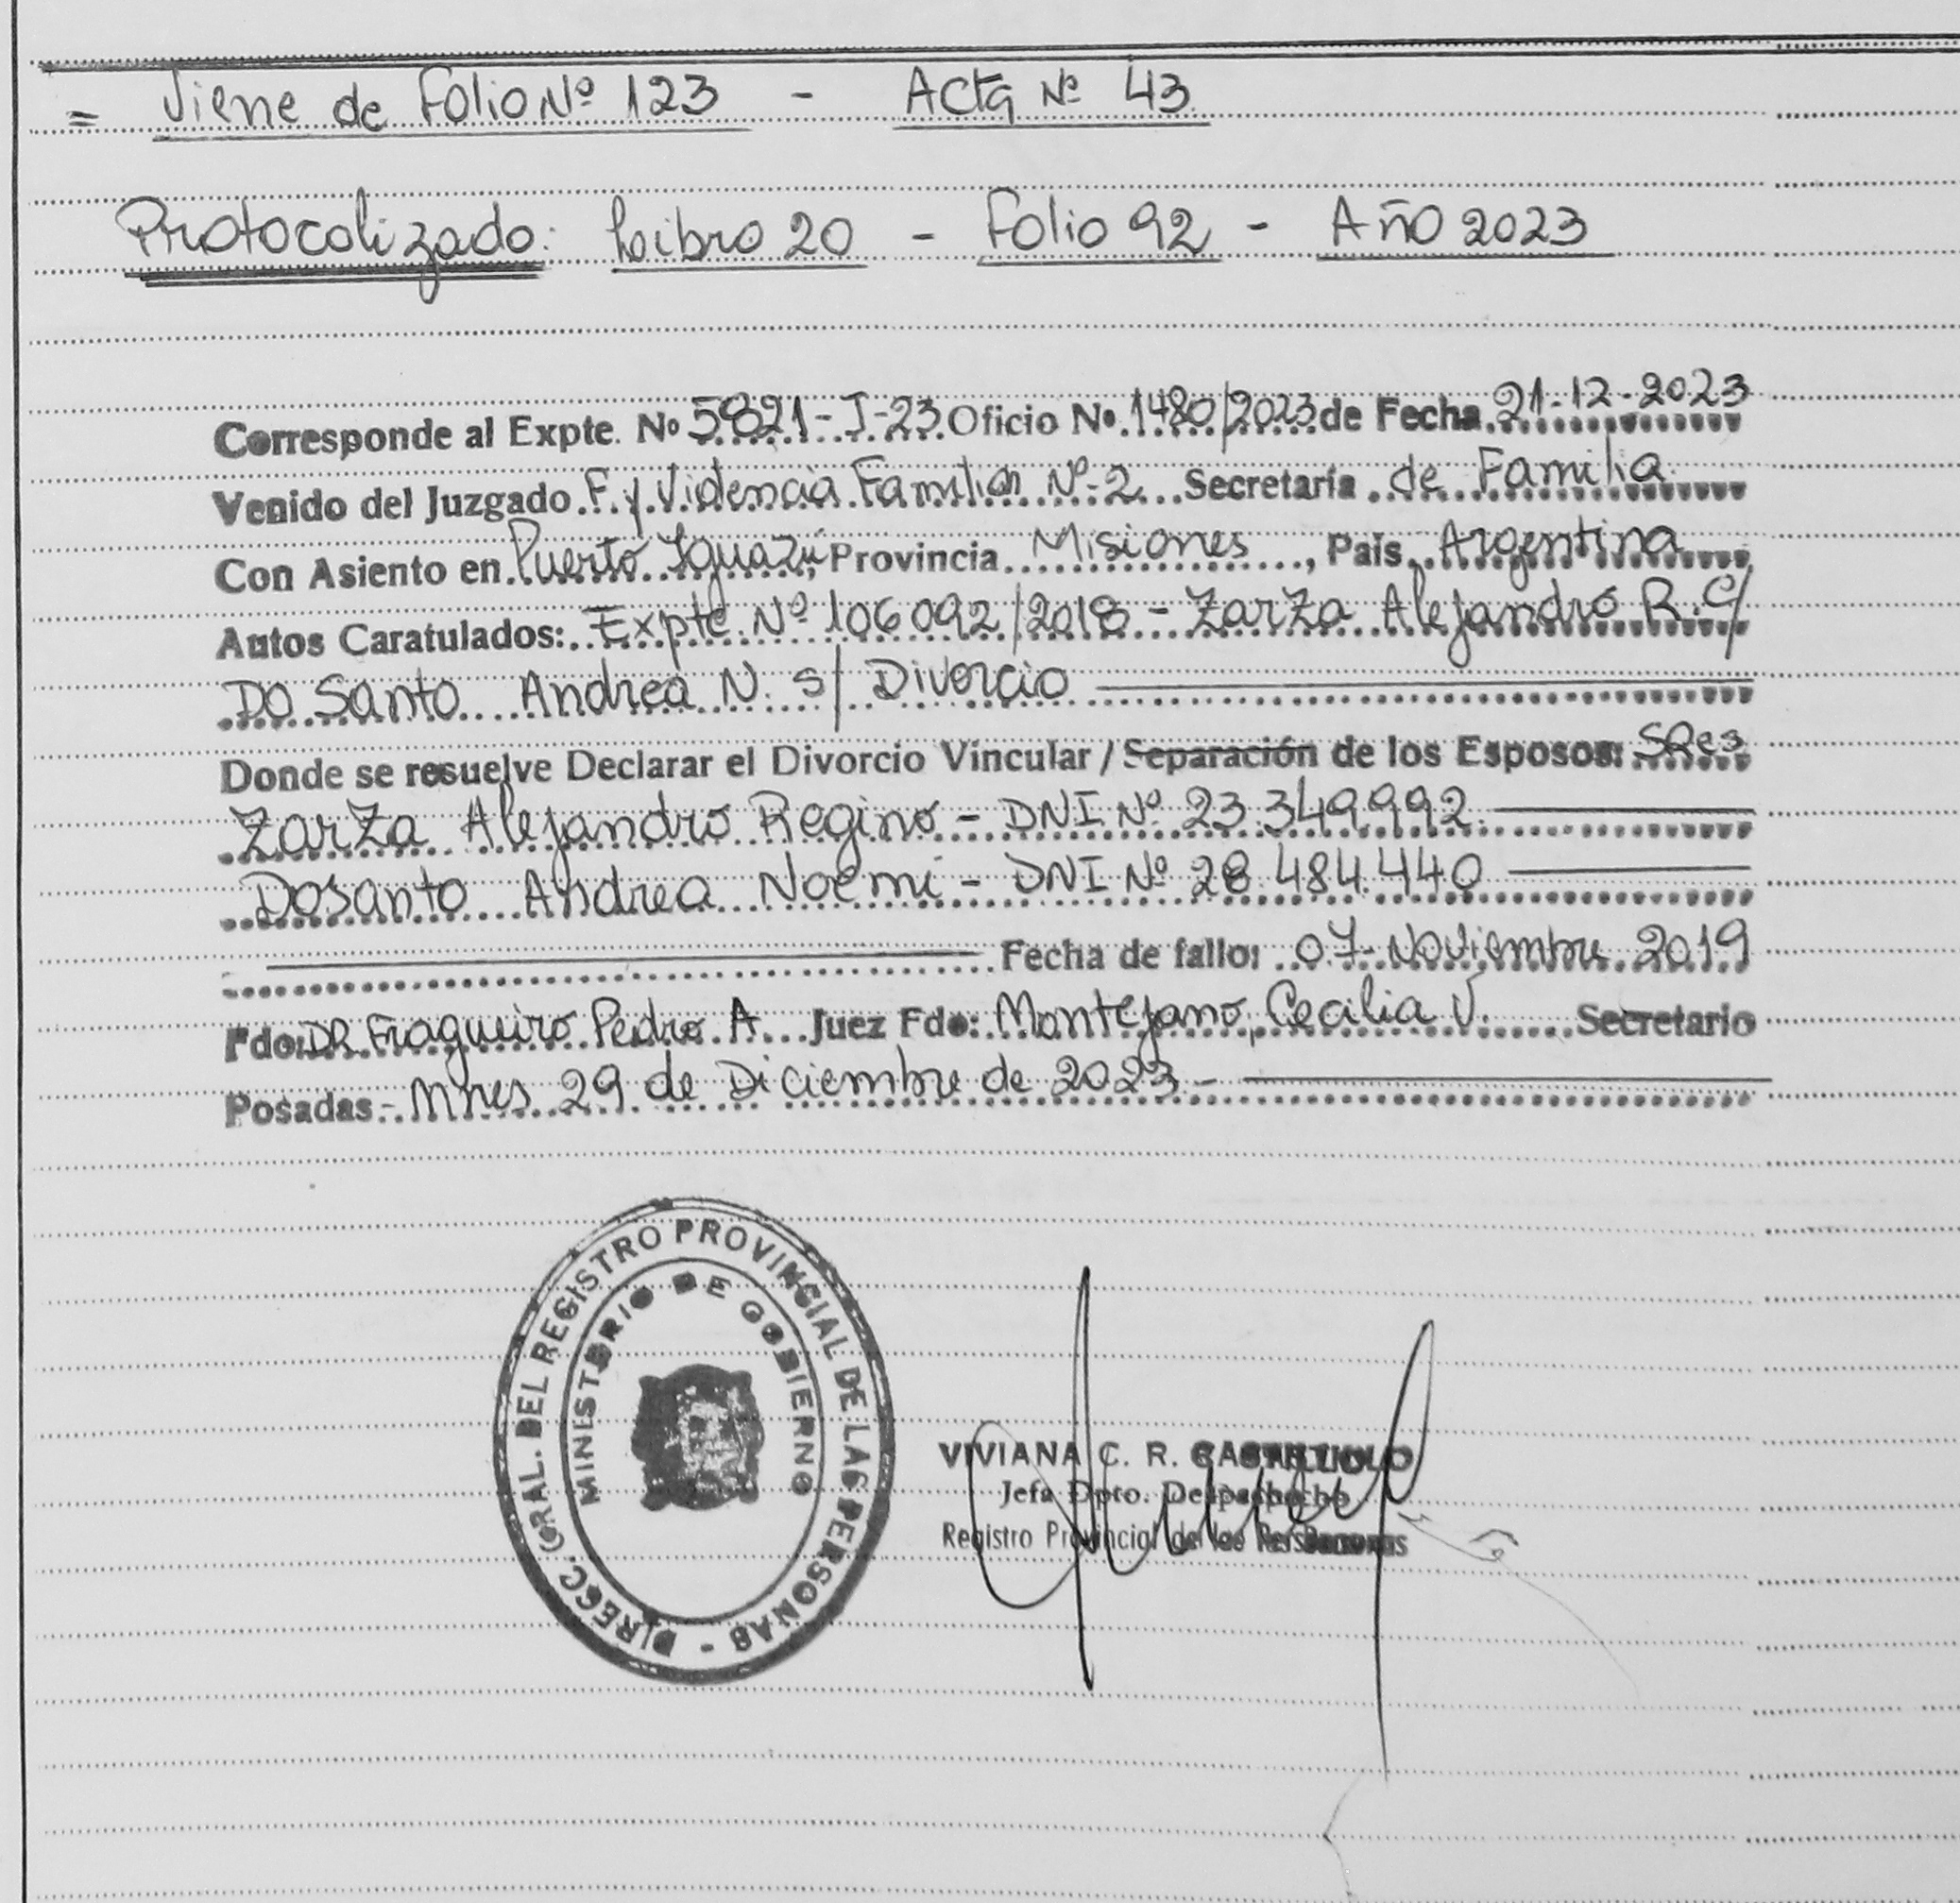 = Viene de Folio Nº 123 - Acta Nº 43
Protocolizado: Libro 20 - Folio 92 - Año 2023
Corresponde al Expte. Nº 5821-I-23 Oficio Nº 1480/2023 de Fecha 21-12-2023
Venido del Juzgado F. y Violencia Familiar Nº 2 Secretaría de Familia
Con Asiento en Puerto Iguazú, Provincia Misiones, País Argentina
Autos Caratulados: Expte. Nº 106092/2018 - Zarza Alejandro R. C/
Do Santo Andrea N. s/ Divorcio
Donde se resuelve Declarar el Divorcio Vincular / Separación de los Esposos: SRes
Zarza Alejandro Regino - DNI Nº 23.349.992
Dosanto Andrea Noemi - DNI Nº 28.484.440
Fecha de fallo: 07-Noviembre 2019
Fdo: DR Fragueiro Pedro A. Juez Fdo: Montejano, Cecilia V. Secretario
Posadas - Mnes 29 de Diciembre de 2023.-
DIRECC. GRAL. DEL REGISTRO PROVINCIAL DE LAS PERSONAS -
MINISTERIO DE GOBIERNO
VIVIANA C. R.
Jefa Dpto. Despacho
Registro Provincial de las Personas